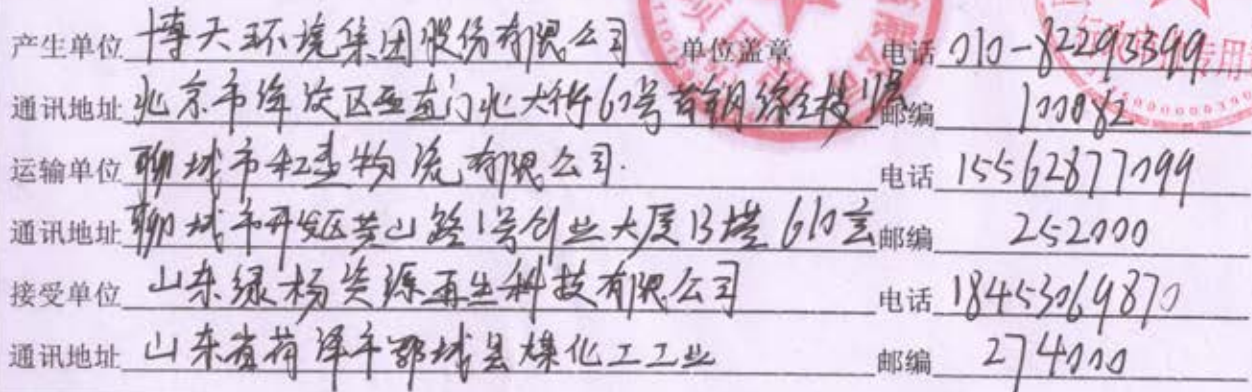 产生单位 博天环境集团股份有限公司 单位盖章 电话 010-82293399
通讯地址 北京市海淀区西直门北大街60号首钢综合楼11层 邮编 100082
运输单位 聊城市红杰物流有限公司. 电话 15562877099
通讯地址 聊城市开发区黄山路1号创业大厦B塔610室 邮编 252000
接受单位 山东绿杨资源再生科技有限公司 电话 18453069870
通讯地址 山东省荷泽市鄄城县煤化工工业 邮编 274000